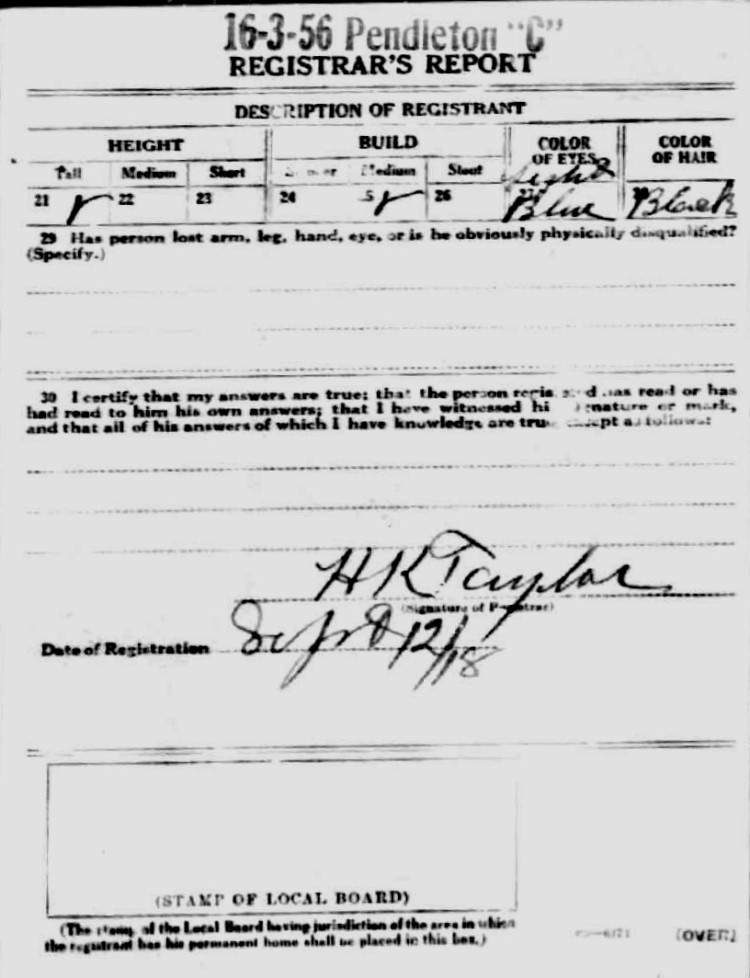 16-3-56 Pendleton "C"
REGISTRAR'S REPORT
DESCRIPTION OF REGISTRANT
HEIGHT BUILD COLOR OF EYES COLOR OF HAIR
Tall Medium Short Medium Stout
21 22 23 24 25 26 27
Light Blue Black
29 Has person lost arm, leg, hand, eye, or is he obviously physically disqualified?
(Specify.)
30 I certify that my answers are true; that the person has read or has
had read to him his own answers; that I have witnessed or mark,
and that all of his answers of which I have knowledge are true except as follows:
H K Taylor
(Signature of Registrar)
Date of Registration Sept 12/18
(STAMP OF LOCAL BOARD)
(The stamp of the Local Board having jurisdiction of the area in which
the registrant has his permanent home shall be placed in this box.)
(OVER)